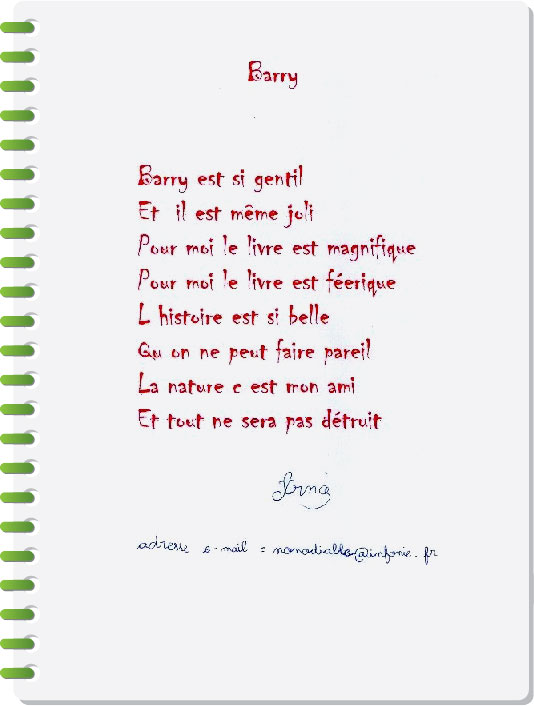 Barry
Barry est si gentil
Et il est même joli
Pour moi le livre est magnifique
Pour moi le livre est féerique
L histoire est si belle
Qu on ne peut faire pareil
La nature c est mon ami
Et tout ne sera pas détruit
adresse e-mail = nanadiallo@infonie.fr